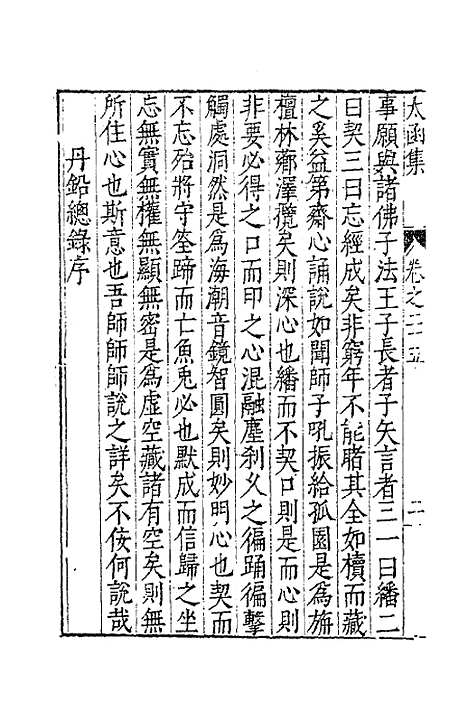 太函集 卷之二十五 二
事願與諸佛子法王子長者子矢言者三一曰繙二
曰契三曰忘經成矣非窮年不能睹其全如櫝而藏
之奚益第齋心誦說如聞師子吼振給孤園是爲旃
檀林薌澤攬矣則深心也繙而不契口則是而心則
非要必得之口而印之心混融塵刹久之徧踊徧擊
觸處洞然是爲海潮音鏡智圓矣則妙明心也契而
不忘殆將守筌蹄而亡魚兎必也默成而信歸之坐
忘無實無權無顯無密是爲虛空藏諸有空矣則無
所住心也斯意也吾師師師說之詳矣不佞何說哉
丹鉛總錄序